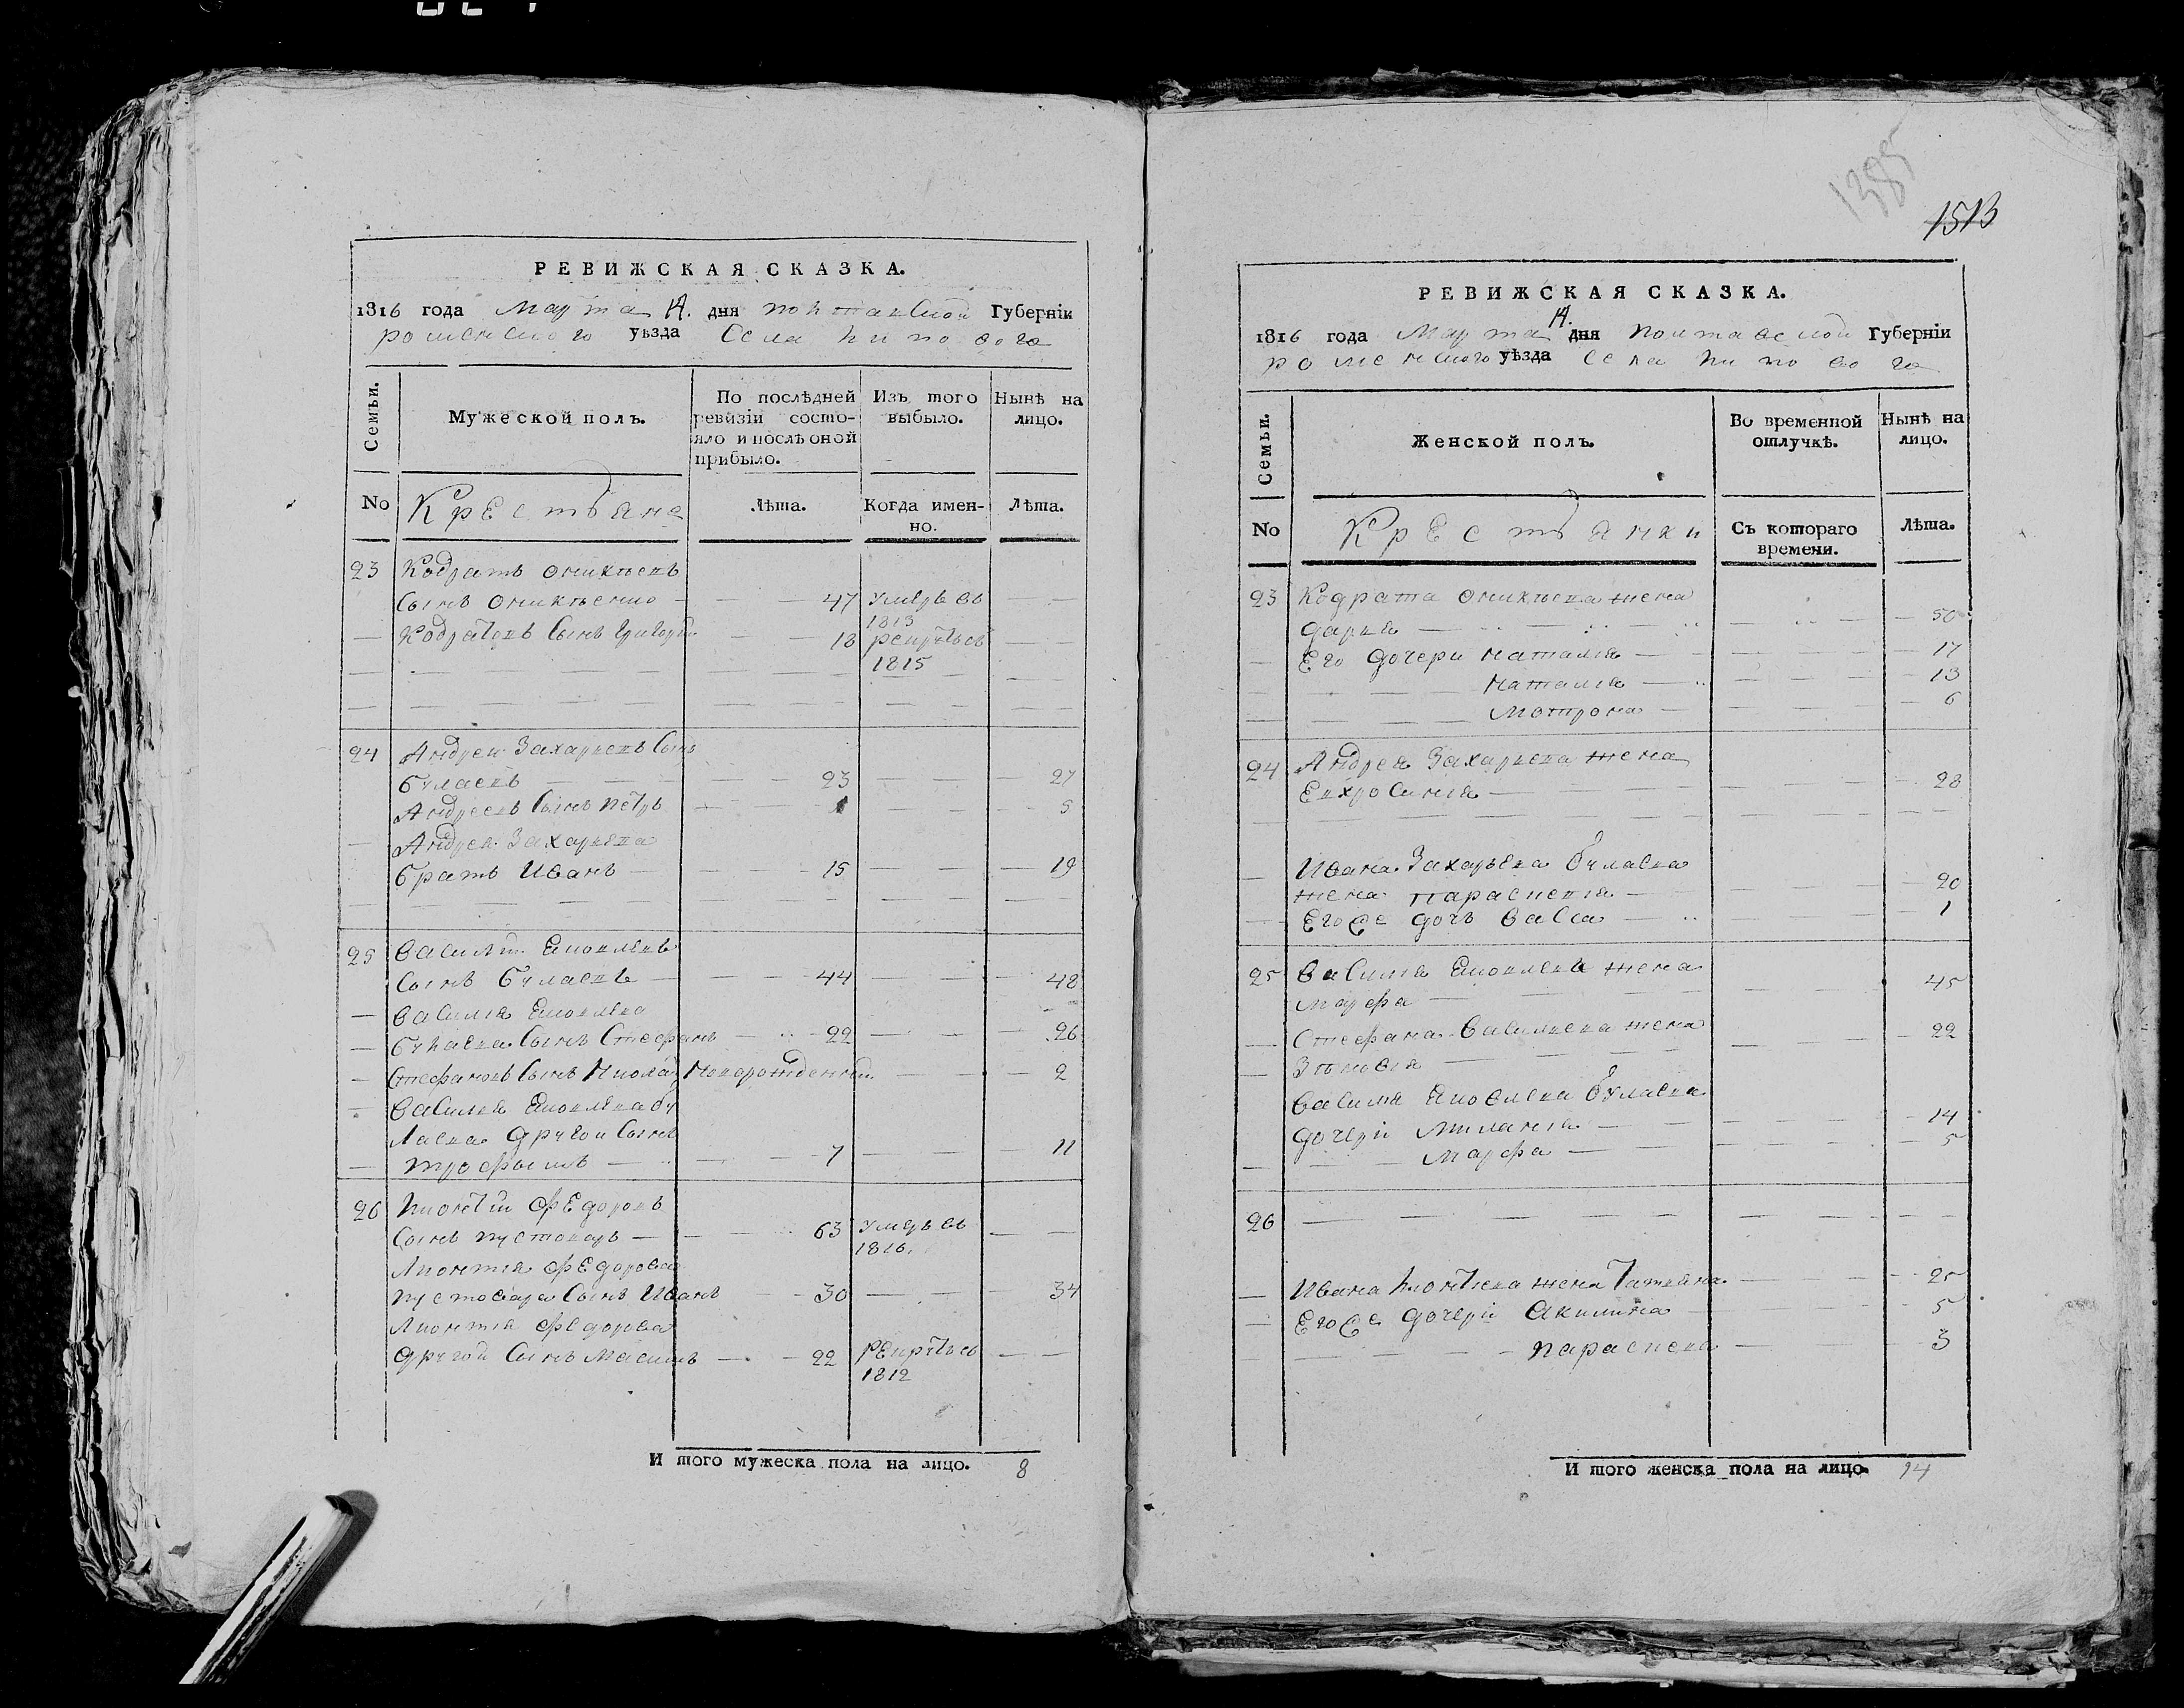 РЕВИЖСКАЯ СКАЗКА.
1816 года Марта 14. дня полтавской Губерніи
роменского уѣзда Села липового
Семьи.
Мужеской полъ.
По послѣдней ревизіи состо-
яло и послѣ оной прибыло.
Изъ того выбыло.
Нынѣ на лицо.
No Крестьяне Лѣта. Когда имен-
но. Лѣта.
23 Кодратъ
Сынъ — 47 умеръ въ
1813
— Кодратовъ Сынъ Григорій — 18 рекрутъ въ
1815
24 Андрей Захарьевъ Сынъ
булавкъ — 23 — 27
Андреевъ Сынъ петръ — 1 — 5
— Андрея Захарьева
братъ Иванъ — 15 — 19
25 Василій Яковлевъ
Сынъ булавкъ — 44 — 48
— Василія Яковлева
— булавка Сынъ Стефанъ — 22 — 26
— Стефановъ Сынъ Никола Новорожденный — 2
— Василія Яковлева бу
лавка другой Сынъ
— трофимъ — 7 — 11
26 Лионтій Федоровъ
Сынъ пустоваръ — 63 умеръ въ
1816.
Лионтія Федорова
пустовара Сынъ Иванъ — 30 — 34
Лионтія Федорова
другой Сынъ Максимъ — 22 рекрутъ въ
1812
И того мужеска пола на лицо. 8
1385
1513
РЕВИЖСКАЯ СКАЗКА.
1816 года Марта 14. дня полтавской Губерніи
роменского уѣзда Села липового
Семьи.
Женской полъ.
Во временной отлучкѣ.
Нынѣ на лицо.
No Крестьянки Съ котораго
времени. Лѣта.
23 Кодрата жена
дарья — 50
— Его дочери наталія — 17
наталія — 13
Мотрона — 6
24 Андрея Захарьева жена
Евхросинія — 28
— Ивана Захарьева булавка
жена параскевія — 20
— Его же дочь васса — 1
25 Василія Яковлева жена
марфа — 45
— Стефана Васильева жена
— Зѣновія — 22
Василія Яковлева булавка
дочери миланія — 14
— марфа — 5
26 —
— Ивана Лионтіева жена Татьяна — 25
— Его же дочери Акилина — 5
— параскева — 3
И того женска пола на лицо. 14